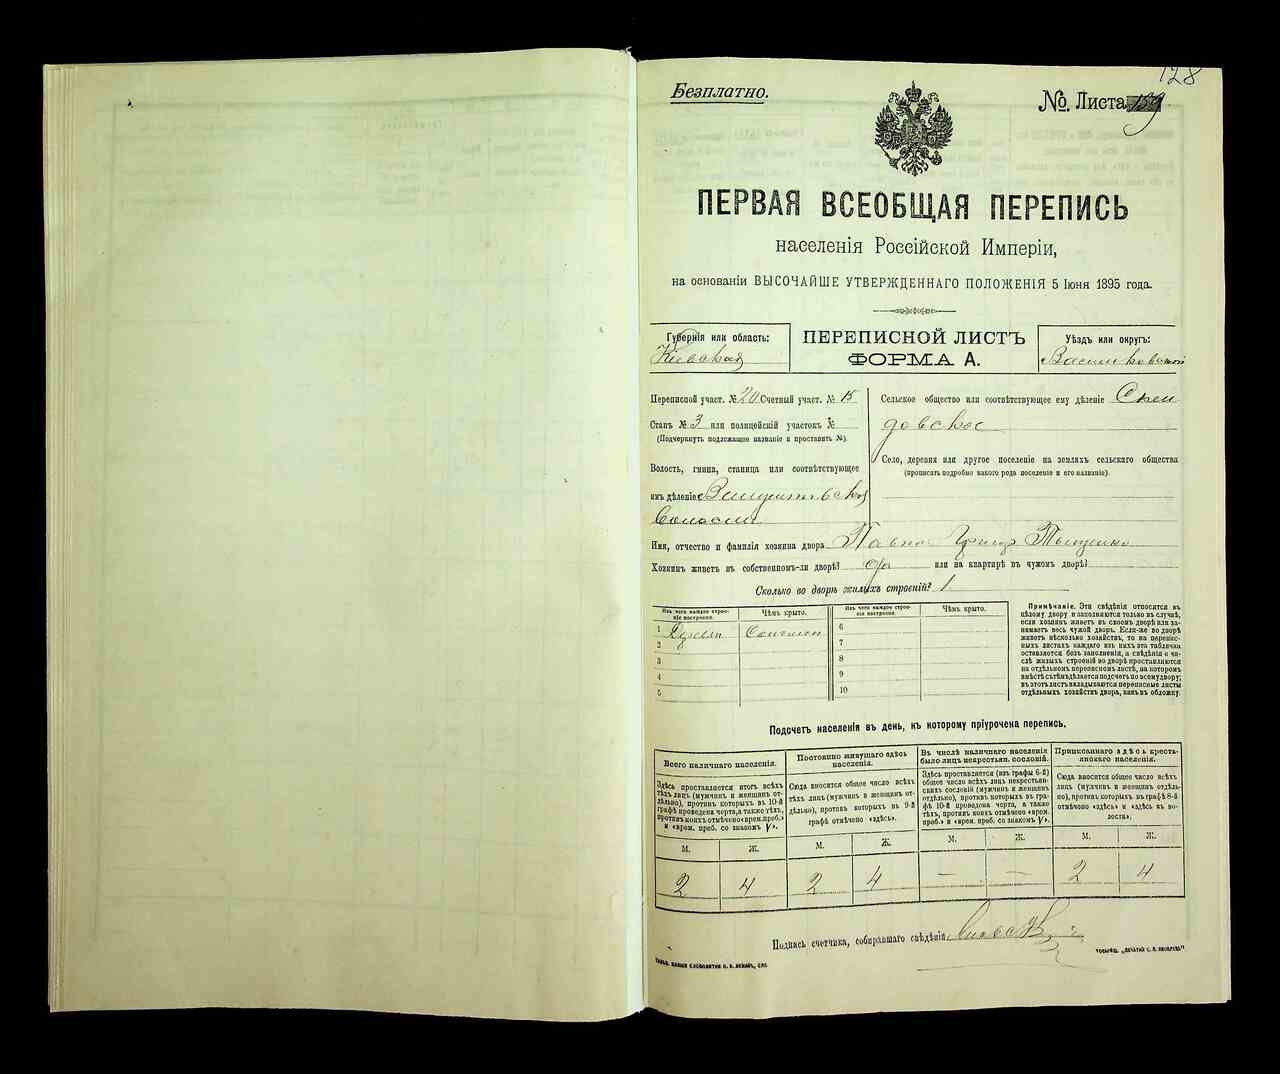 128
Безплатно.
№. Листа 139
ПЕРВАЯ ВСЕОБЩАЯ ПЕРЕПИСЬ
населенія Россійской Имперіи,
на основаніи ВЫСОЧАЙШЕ УТВЕРЖДЕННАГО ПОЛОЖЕНІЯ 5 Іюня 1895 года.
Губернія или область:
Кіевская
ПЕРЕПИСНОЙ ЛИСТЪ
ФОРМА А.
Уѣздъ или округъ:
Васильковский
Переписной участ. № 20 Счетный участ. № 15
Станъ № 3 или полицейскій участокъ №
(Подчеркнуть подлежащее названіе и проставить №).
Волость, гмина, станица или соотвѣтствующее
имъ дѣленіе
волость
Сельское общество или соотвѣтствующее ему дѣленіе
Село, деревня или другое поселеніе на земляхъ сельскаго общества
(прописать подробно какого рода поселеніе и его названіе).
Имя, отчество и фамилія хозяина двора
Хозяинъ живетъ въ собственномъ-ли дворѣ? да или на квартирѣ въ чужомъ дворѣ?
Сколько во дворѣ жилыхъ строеній? 1
Изъ чего каждое строеніе построено.
Чѣмъ крыто.
1 Соломою
2
3
4
5
Изъ чего каждое строеніе построено.
Чѣмъ крыто.
6
7
8
9
10
Примѣчаніе. Эти свѣдѣнія относятся къ
цѣлому двору и заполняются только въ случаѣ,
если хозяинъ живетъ въ своемъ дворѣ или занимаетъ
весь чужой дворъ. Если-же во дворѣ
живетъ нѣсколько хозяйствъ, то на переписныхъ
листахъ каждаго изъ нихъ эта табличка
оставляется безъ заполненія, а свѣдѣнія о числѣ
жилыхъ строеній во дворѣ проставляются
на отдѣльномъ переписномъ листѣ, на которомъ
вмѣстѣ съ тѣмъ дѣлается подсчетъ по всему двору;
въ этотъ листъ вкладываются переписные листы
отдѣльныхъ хозяйствъ двора, какъ въ обложку.
Подсчетъ населенія въ день, къ которому пріурочена перепись.
Всего наличнаго населенія.
Здѣсь проставляется итогъ всѣхъ
тѣхъ лицъ (мужчинъ и женщинъ отдѣльно),
противъ которыхъ въ 10-й
графѣ проведена черта, а также тѣхъ,
противъ коихъ отмѣчено «врем. преб.»
и «врем. преб. со знакомъ V».
М. Ж.
2 4
Постоянно живущаго здѣсь
населенія.
Сюда вносится общее число всѣхъ
тѣхъ лицъ (мужчинъ и женщинъ отдѣльно),
противъ которыхъ въ 9-й
графѣ отмѣчено «здѣсь».
М. Ж.
2 4
Въ числѣ наличнаго населенія
было лицъ некрестьян. сословій.
Здѣсь проставляется (изъ графы 6-й)
общее число всѣхъ лицъ некрестьянскихъ
сословій (мужчинъ и женщинъ
отдѣльно), противъ которыхъ въ графѣ
10-й проведена черта, а также
тѣхъ, противъ коихъ отмѣчено «врем.
преб.» и «врем. преб. со знакомъ V».
М. Ж.
— —
Приписаннаго здѣсь крестьянскаго
населенія.
Сюда вносится общее число всѣхъ
лицъ (мужчинъ и женщинъ отдѣльно),
противъ которыхъ въ графѣ 8-й
отмѣчено «здѣсь» и «здѣсь въ волости».
М. Ж.
2 4
Подпись счетчика, собиравшаго свѣдѣнія